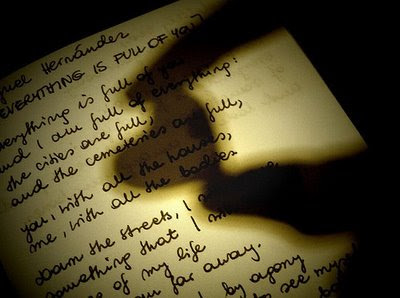 guel Hernández
EVERYTHING IS FULL OF YOU
erything is full of you
nd I am full of everything:
the cities are full,
and the cemeteries are full,
you, with all the houses,
me, with all the bodies
Down the streets, I
something that I
of my life
far away.
by agony
see myse